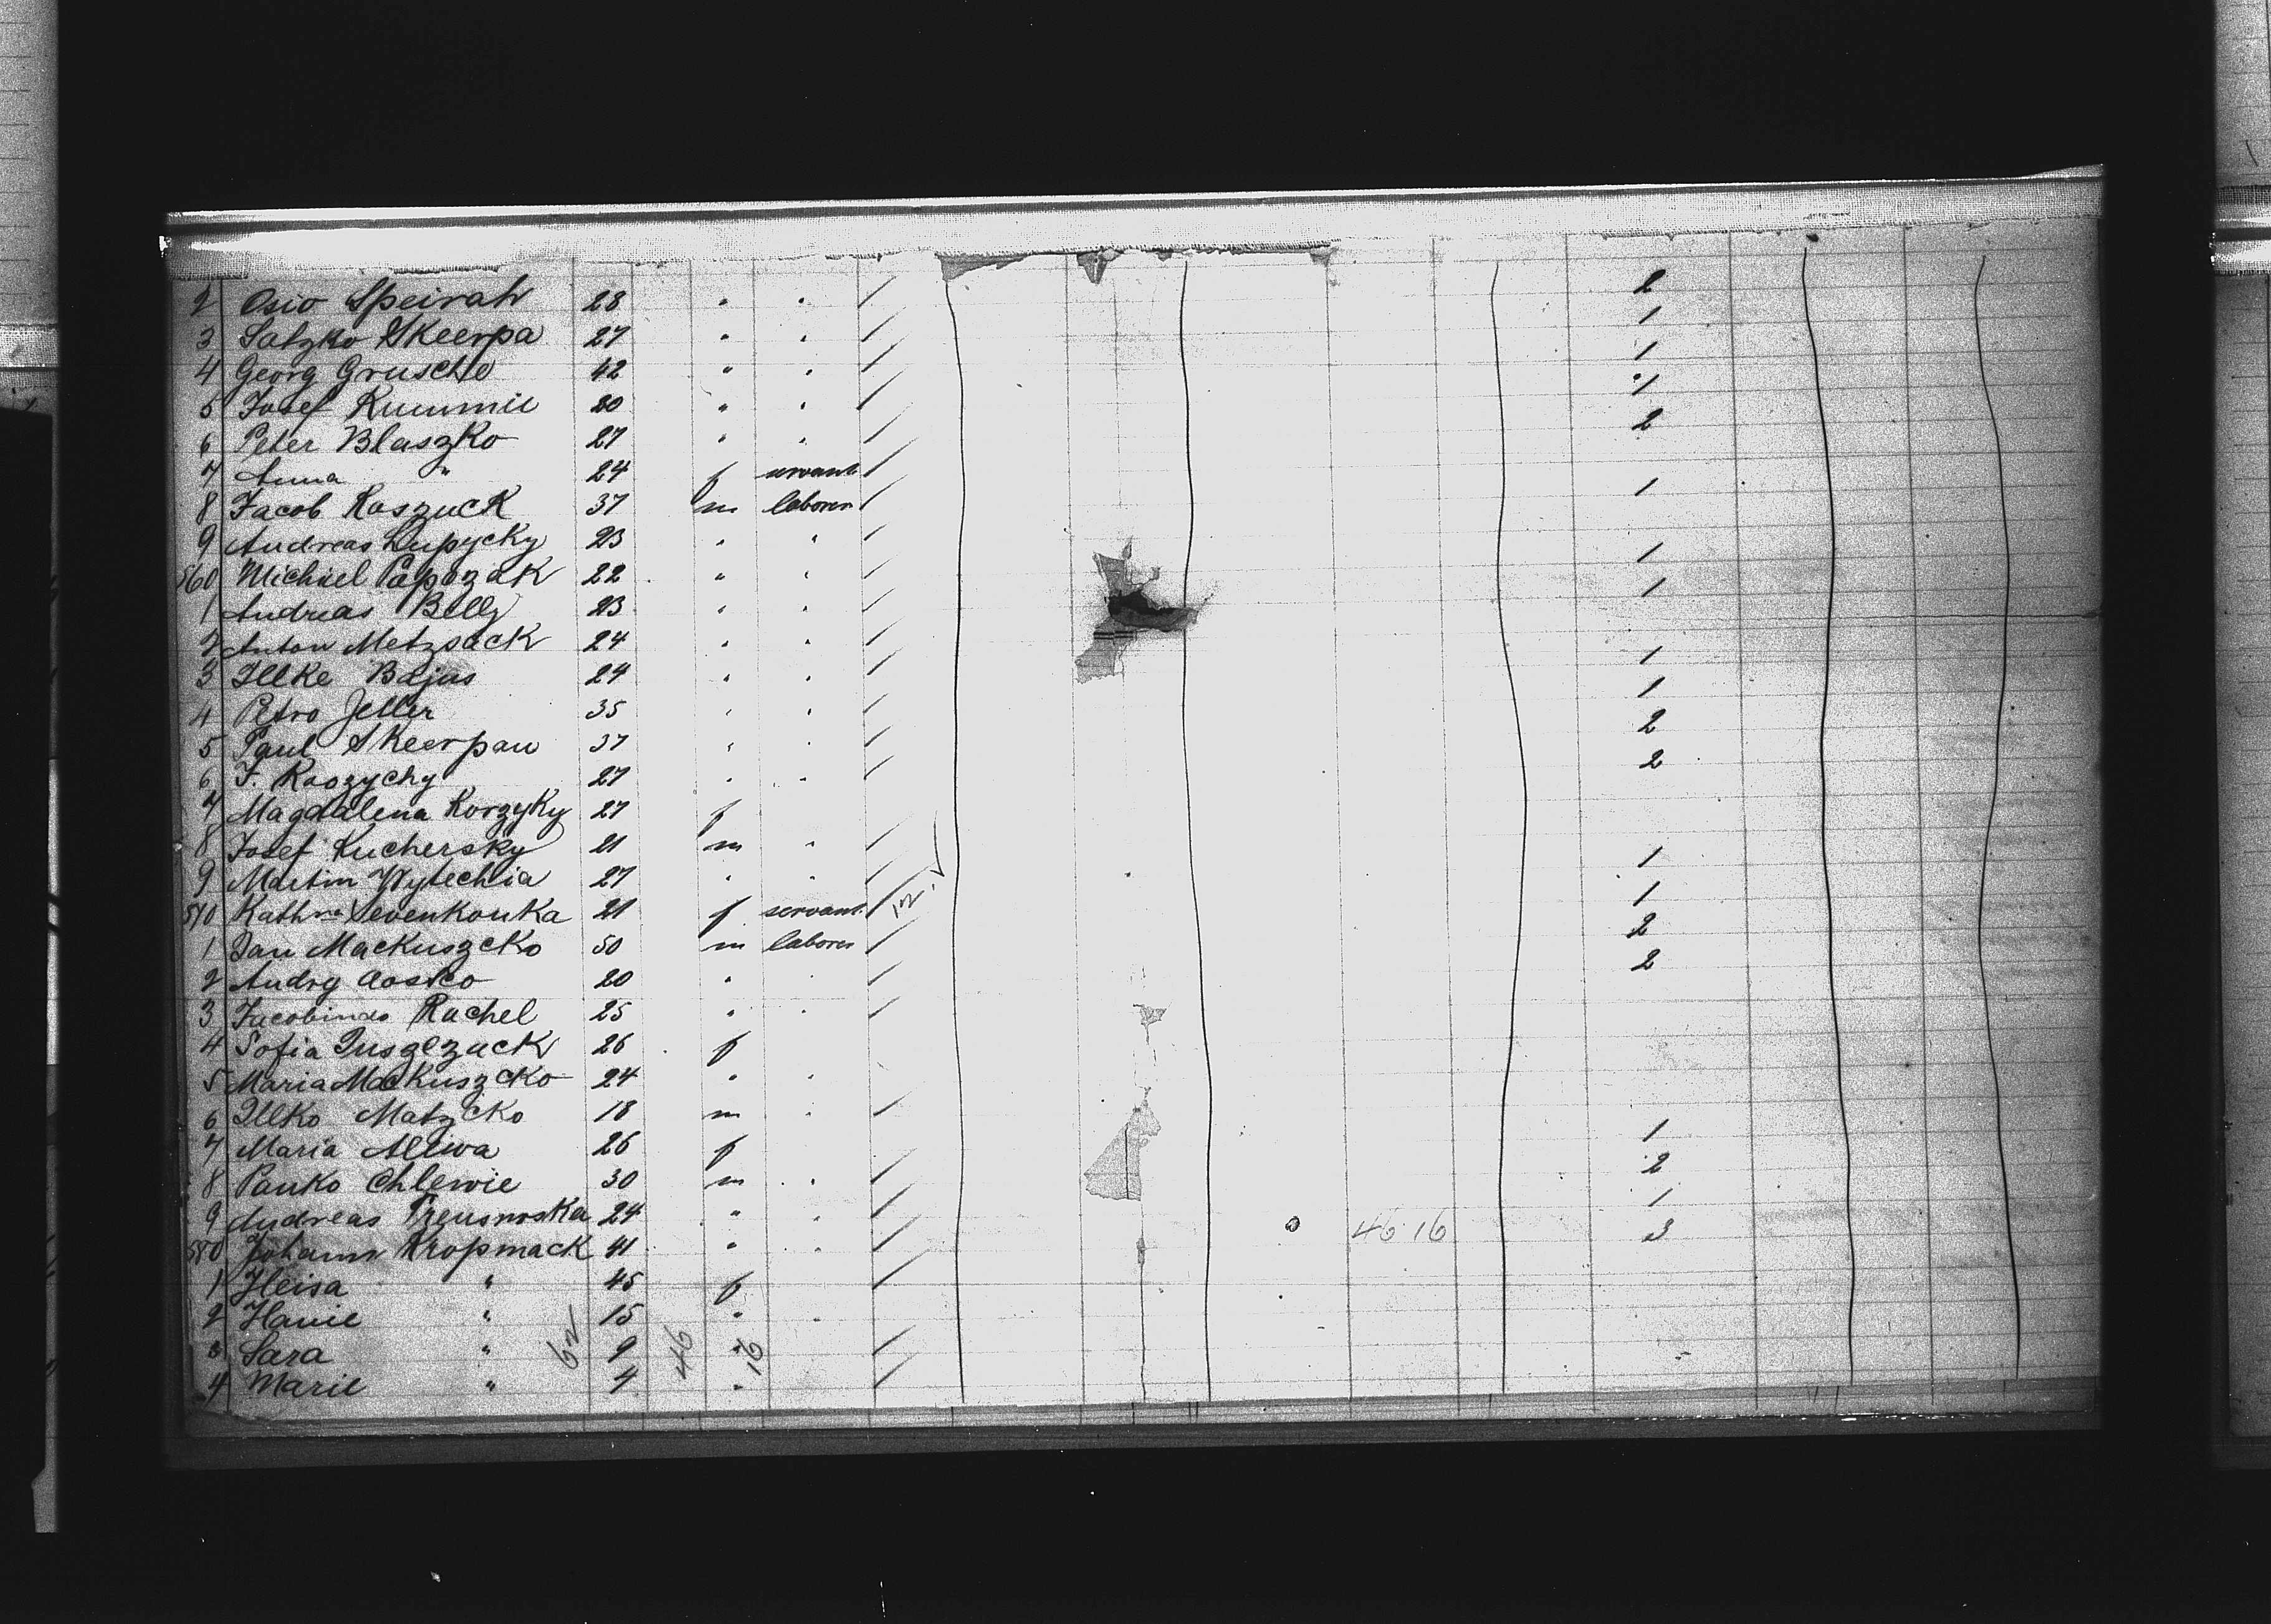 2 Osio Speirah 28 " " / 2
3 Satzko Skeerpa 27 " " / 1
4 Georg Grusche 42 " " / 1
5 Josef Kuummie 20 " " / 1
6 Peter Blaszko 27 " " / 2
7 Anna " 24 f servant /
8 Jacob Kaszuck 37 m laborer / 1
9 Andreas Lupycky 23 " " /
560 Michael Papozak 22 " " / 1
1 Andreas Belly 23 " " / 1
2 Anton Metzsack 24 " " /
3 Illke Bajus 24 " " / 1
4 Petro Jeller 35 " " / 1
5 Paul Skeerpan 37 " " / 2
6 F. Koozychy 27 " " / 2
7 Magdalena Korzyky 27 f
8 Josef Kuchersky 21 m " /
9 Martin Wytechia 27 " " / 1
570 Kathna Sevenkouka 21 f servant / 12. ✓ 1
1 Jan Mackuszcko 50 m laborer / 2
2 Andry Aosko 20 " " / 2
3 Jacobinas Rachel 25 " " /
4 Sofia Juszczuck 26 f
5 Maria Mackuszcko 24 " "
6 Illko Matzcko 18 m " /
7 Maria Allwa 26 f 1
8 Panko Chlewie 30 m " / 2
9 Andreas Przeusnoska 24 " " / 1
580 Johann Kropmack 41 " " / 46 16 3
1 Heisa " 45 f /
2 Hanie " 15 " "
3 Sara " 9 " /
4 Marie " 4 " /
62 46 16